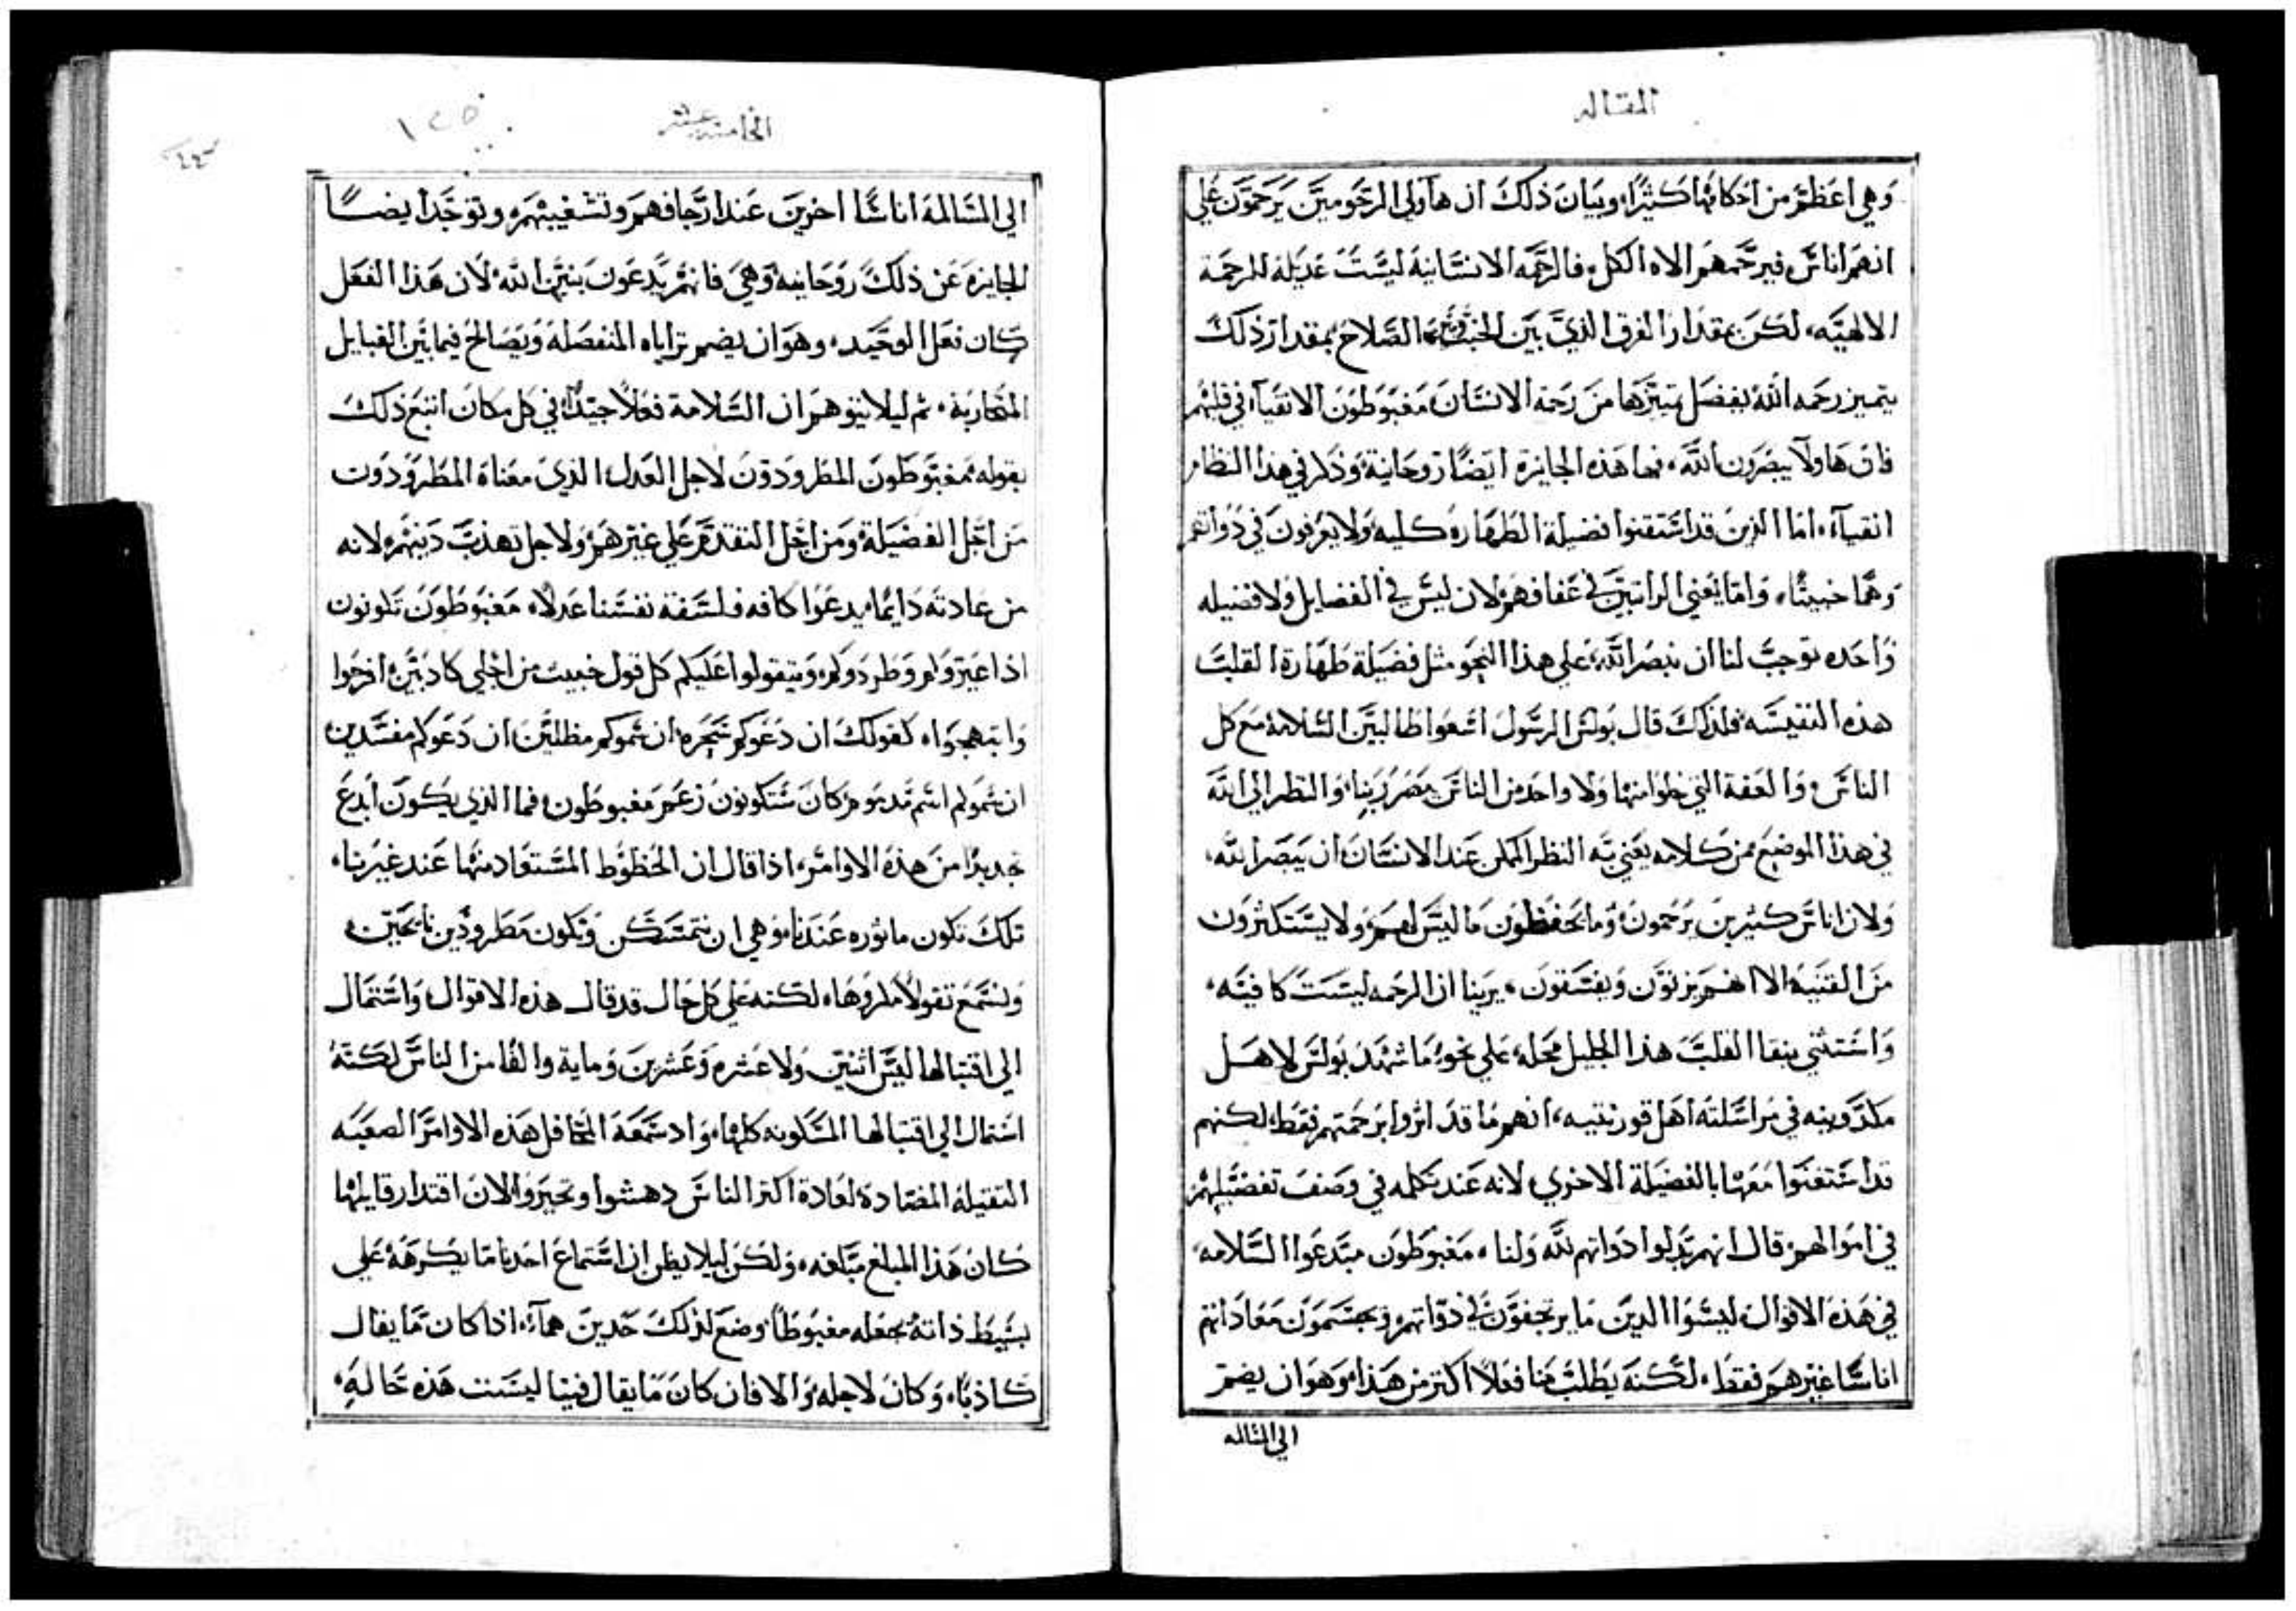 المقاله
وهي اعظم من احكامها كثيرا، وبيان ذلك ان هاولي الرحومين يرحمون علي
انهم اناس فيرحمهم الاه الكل، فالرحمه الانسانية ليست عديله للرحمة
الالهيه، لكن بمقدار الفرق الذي بين الخبث وبين الصلاح بمقدار ذلك
يتميز رحمه الله بفضل تميزها من رحمة الانسان مغبوطون الانقياء في قلبهم
فان هاولا يبصرون الله، فها هذه الجايزة ايضا روحانية وذكر في هذا النظام
انقياء، اما الذين قد استقنوا فضيلة الطهاره كليه ولا يعرفون في ذواتهم
وهما خبيثا، واما يعني الراتبين في عفافهم لان ليس في الفضايل ولا فضيله
واحده توجب لنا ان نبصر الله علي هذا النحو مثل فضيلة طهارة القلب
هذه النفيسه فلذلك قال بولس الرسول اسعوا طالبين السلامة مع كل
الناس والعفة التي خلوا منها ولا واحد من الناس يبصر ربنا، والنظر الي الله
في هذا الموضع من كلامه يعني به النظر الممكن عند الانسان ان يبصر الله،
ولان اناس كثيرين يرحمون وما يخفظون ما ليس لهم ولا يستكثرون
من القنيه الا انهم يزنون ويفسقون، يرينا ان الرحمه ليست كافيه،
واستثني بنقا القلب هذا الجليل محله علي نحو ما شهد بولس لاهل
مكدونيه في مراسلته اهل قورنتيه، انهم ما قد اثروا برحمتهم فقط لكنهم
قد استقنوا معها بالفضيلة الاخري لانه عند تكلمه في وصف تفضيلهم
في اموالهم قال انهم بذلوا ذواتهم لله ولنا، مغبوطون مبتدعوا السلامه
في هذه الاقوال ليسوا الذين ما يرتجفون في ذواتهم ويجتسمون معاداتهم
اناسا غيرهم فقط، لكنه يطلب منا فعلا اكتر من هذا، وهو ان يضم
الي المسالمه
الخامسه عشر
الي المسالمة اناسا اخرين عند ارجافهم وتشغيبهم، وتوجد ايضا
الجايزه عن ذلك روحانية وهي فانهم يدعون بنين الله، لان هذا الفعل
كان فعل الوحيد، وهو ان يضم براياه المنفصلة ويصالح فيما بين القبايل
المتحاربة، ثم ليلا يتوهم ان السلامة فعلا جيدا في كل مكان اتبع ذلك
بقوله مغبوطون المطرودون لاجل العدل الذي معناه المطرودون
من اجل الفضيلة ومن اجل التقدم علي غيرهم ولاجل تهذب دينهم لانه
من عادته دايما يدعوا كافه فلسفة نفسنا عدلا، مغبوطون تكونون
اذا عيروكم وطردوكم وتيقولوا عليكم كل قول خبيث من اجلي كاذبين، افرحوا
وابتهجوا، كقولك ان دعوكم سحره ان سموكم مظلين ان دعوكم مفسدين
ان سموكم اسم مذموم كان ستكونون زعم مغبوطون، فما الذي يكون ابدع
جديدا من هذه الاوامر، اذا قال ان الحظوظ المستعاذ منها عند غيرنا،
تلك تكون ماثوره عندنا، وهي ان نتمسكن ونكون مطرودين نايحين،
ونسمع تقولا مكروها، لكنه علي كل حال قد قال هذه الاقوال، واستمال
الي اقتبالها ليس اثنين ولا عشره وعشرين وماية والفا من الناس لكنه
استمال الي اقتبالها المسكونه كلها، واد سمعة المحافل هذه الاوامر الصعبه
الثقيلة المضادة لعادة اكثر الناس دهشوا وتحيروا، لان اقتدار قايلها
كان هذا المبلغ مبلغه، ولكن ليلا يظن ان استماع احدنا ما يكرهه علي
بسيط ذاته يجعله مغبوطا، وضع لذلك حدين هماء، اذا كان ما يقال
كاذبا، وكان لاجله، والا فان كان ما يقال فينا ليست هذه حاله،